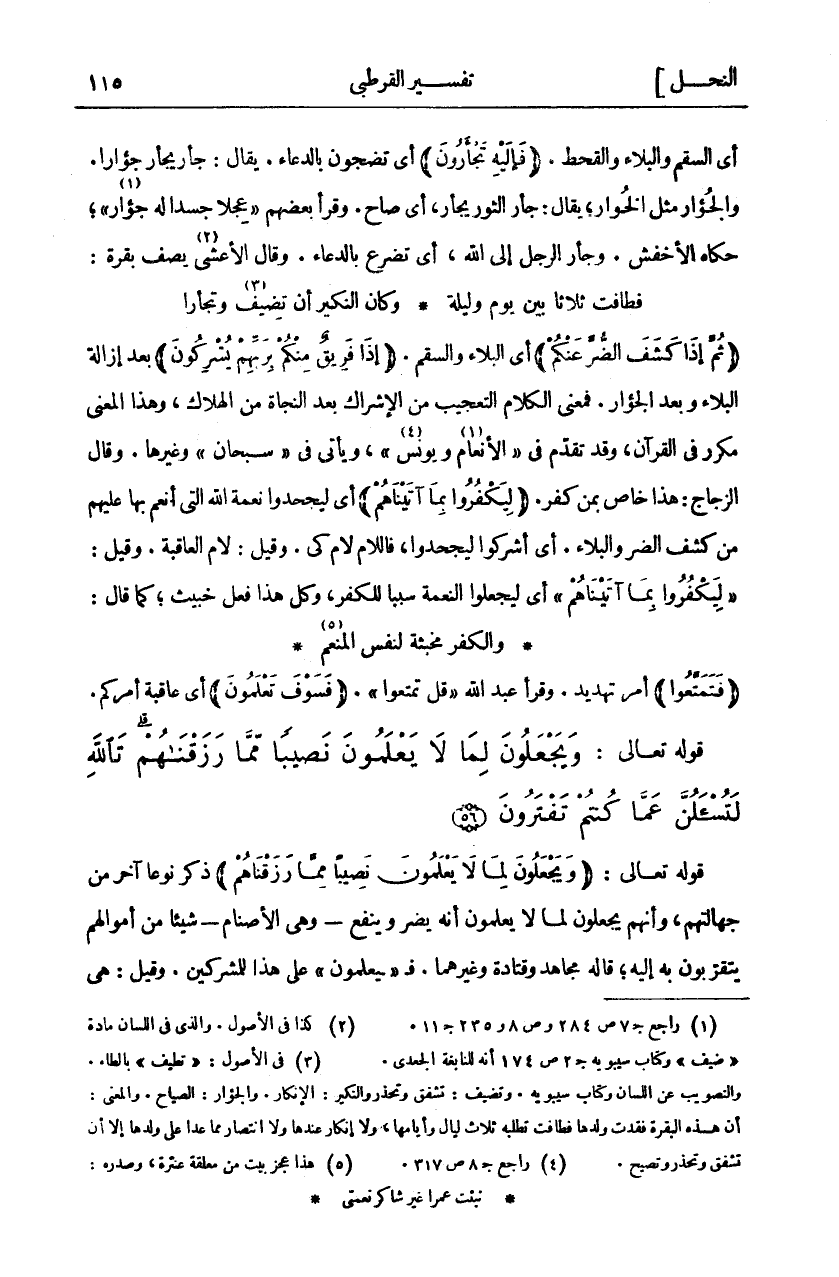 النحـــل ] تفســـير القرطبى ١١٥
أى السقم والبلاء والقحط . ﴿ فَإِلَيْهِ تَجْأَرُونَ ﴾ أى تضجون بالدعاء . يقال : جأر يجأر جؤارا .
والجُؤار مثل الخُوار ؛ يقال : جأر الثور يجأر ، أى صاح . وقرأ بعضهم « عِجلا جسدا له جؤار (١) » ؛
حكاه الأخفش . وجأر الرجل إلى الله ، أى تضرع بالدعاء . وقال الأعشى (٢) يصف بقرة :
فطافت ثلاثا بين يوم وليلة * وكان النكير أن تضيف (٣) وتجأرا
﴿ ثُمَّ إِذَا كَشَفَ الضُّرَّ عَنْكُمْ ﴾ أى البلاء والسقم . ﴿ إِذَا فَرِيقٌ مِنْكُمْ بِرَبِّهِمْ يُشْرِكُونَ ﴾ بعد إزالة
البلاء و بعد الجؤار . فمعنى الكلام التعجيب من الإشراك بعد النجاة من الهلاك ، وهذا المعنى
مكرر فى القرآن ، وقد تقدّم فى « الأنعام (١) و يونس (٤) » ، ويأتى فى « سـبحان » وغيرها . وقال
الزجاج : هذا خاص بمن كفر . ﴿ لِيَكْفُرُوا بِمَا آتَيْنَاهُمْ ﴾ أى ليجحدوا نعمة الله التى أنعم بها عليهم
من كشف الضر والبلاء . أى أشركوا ليجحدوا ، فاللام لام كى . وقيل : لام العاقبة . وقيل :
« لِيَكْفُرُوا بِمَا آتَيْنَاهُمْ » أى ليجعلوا النعمة سببا للكفر ، وكل هذا فعل خبيث ؛ كما قال :
* والكفر مخبثة لنفس المنعم (٥) *
﴿ فَتَمَتَّعُوا ﴾ أمر تهديد . وقرأ عبد الله « قل تمتعوا » . ﴿ فَسَوْفَ تَعْلَمُونَ ﴾ أى عاقبة أمركم .
قوله تعـالى : وَيَجْعَلُونَ لِمَا لَا يَعْلَمُونَ نَصِيبًا مِّمَّا رَزَقْنَـٰهُمْ ۗ تَٱللَّهِ
لَتُسْـَٔلُنَّ عَمَّا كُنتُمْ تَفْتَرُونَ ﴿٥٦﴾
قوله تعـالى : ﴿ وَيَجْعَلُونَ لِمَا لَا يَعْلَمُونَ نَصِيبًا مِمَّا رَزَقْنَاهُمْ ﴾ ذكر نوعا آخر من
جهالتهم ، وأنهم يجعلون لمـا لا يعلمون أنه يضر و ينفع — وهى الأصنام — شيئا من أموالهم
يتقرّبون به إليه ؛ قاله مجاهد وقتادة وغيرهما . فـ « يعلمون » على هذا للمشركين . وقيل : هى
(١) راجع جـ ٧ ص ٢٨٤ و ص ٨ و ٢٣٥ جـ ١١ . (٢) كذا فى الأصول . والذى فى اللسان مادة
« ضيف » وكتاب سيبويه جـ ٢ ص ١٧٤ أنه للنابغة الجعدى . (٣) فى الأصول : « تطيف » بالطاء .
والتصويب عن اللسان وكتاب سيبويه . وتضيف : تشفق وتحذر والنكير : الإنكار . والجؤار : الصياح . والمعنى :
أن هـذه البقرة فقدت ولدها فطافت تطلبه ثلاث ليال وأيامها ، ولا إنكار عندها ولا انتصار مما عدا على ولدها إلا أن
تشفق وتحذر وتصيح . (٤) راجع جـ ٨ ص ٣١٧ . (٥) هذا عجز بيت من معلقة عنترة ، وصدره :
* نبئت عمرا غير شاكر نعمتى *